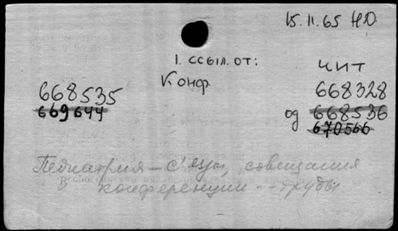 15.11.65 НО
1. ссыл. от:
Конф.
чит
668535
668328
669644
од 668536
670566
Педиатрия – съезды, совещания
в конференции -- труды